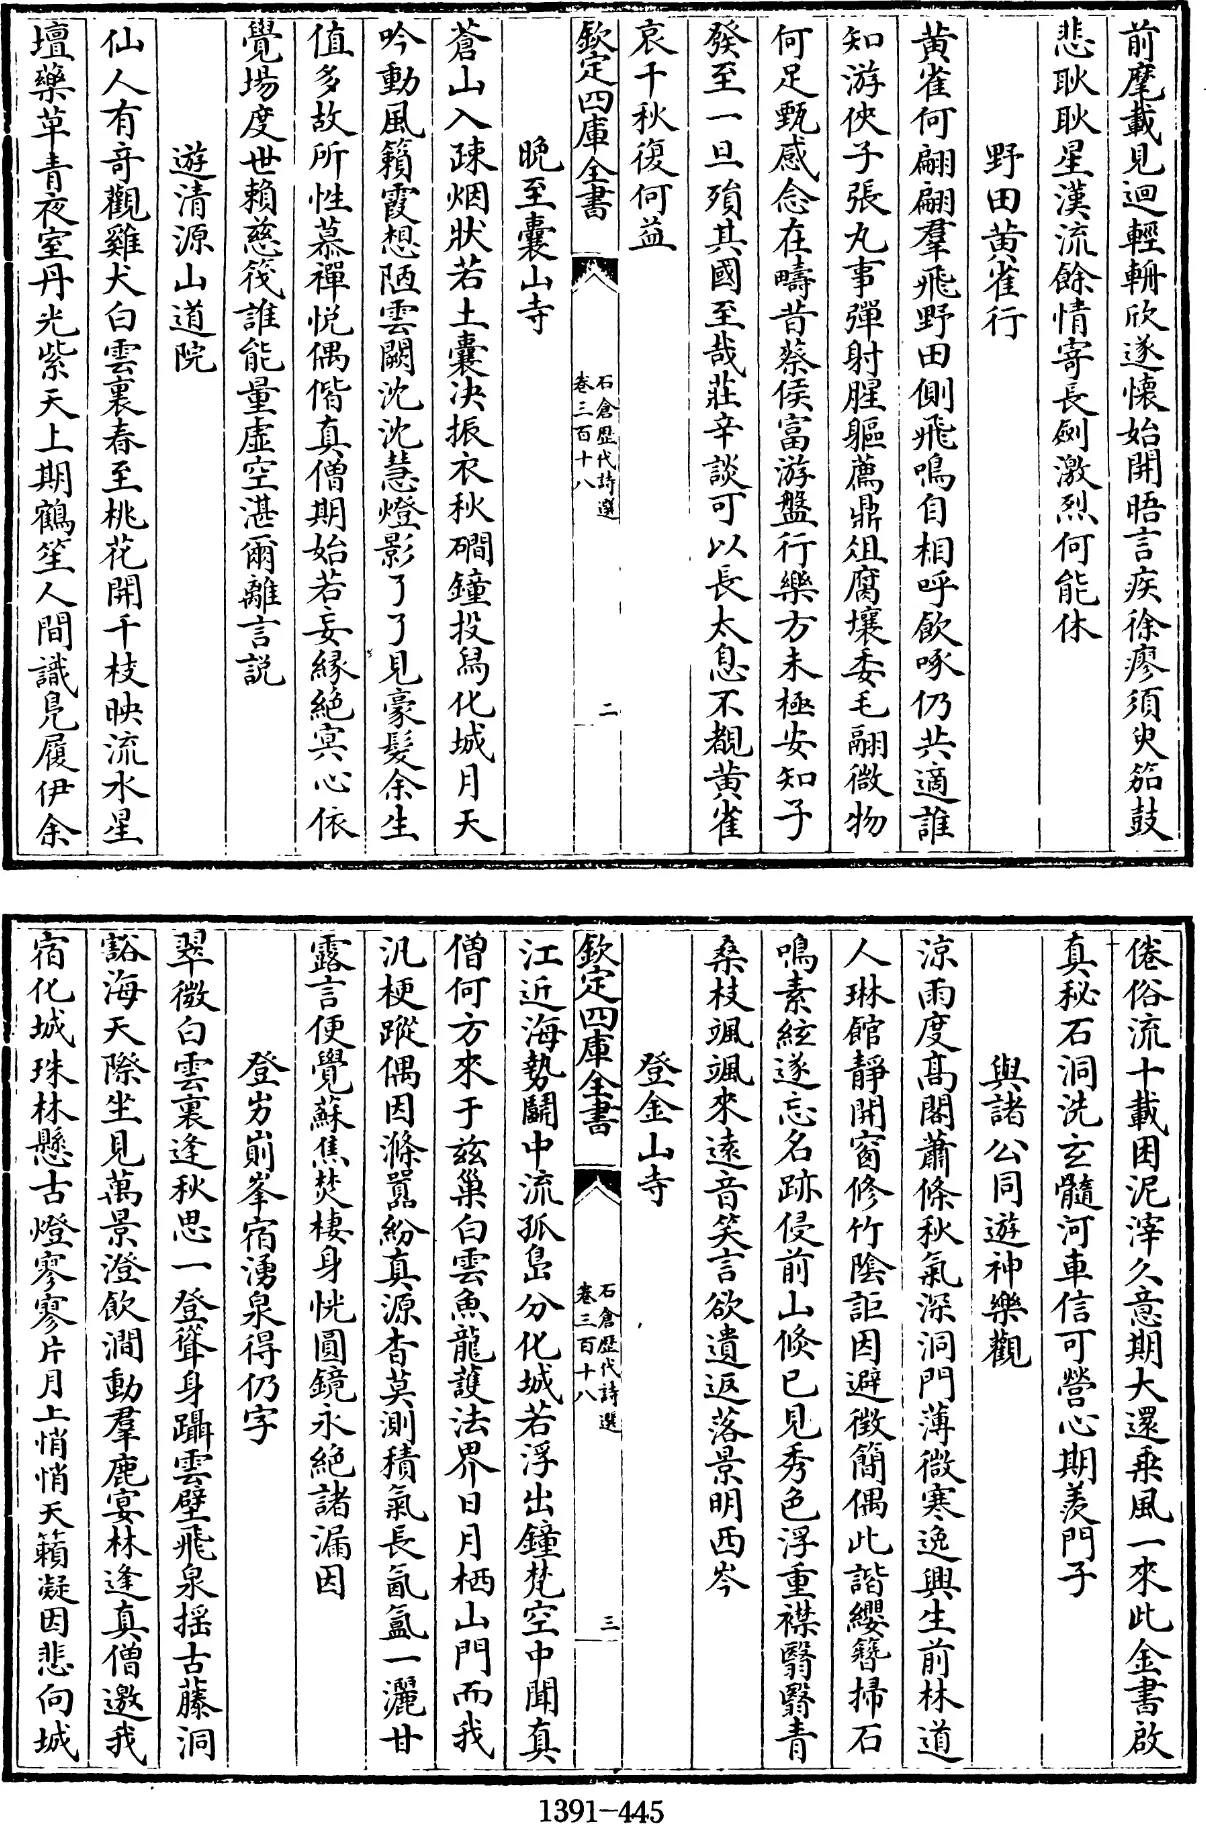 前麾載見迴輕軿欣遂懷始開晤言疾徐瘳須臾笳鼓
悲耿耿星漢流餘情寄長劍激烈何能休
野田黄雀行
黄雀何翩翩羣飛野田側飛鳴自相呼飲啄仍共適誰
知游俠子張丸事彈射腥軀薦鼎俎腐壤委毛翮微物
何足甄感念在疇昔蔡侯富游盤行樂方未極安知子
發至一旦殞其國至哉莊辛談可以長太息不覩黄雀
哀千秋復何益
欽定四庫全書
石倉歷代詩選
卷三百十八
二
晚至囊山寺
蒼山入疎烟狀若土囊决振衣秋磵鐘投舄化城月天
吟動風籟霞想陋雲闕沈沈慧燈影了了見豪髮余生
值多故所性慕禪悦偶偕真僧期始若妄緣絶冥心依
覺場度世賴慈筏誰能量虚空湛爾離言説
遊清源山道院
仙人有竒觀雞犬白雲裏春至桃花開千枝映流水星
壇藥草青夜室丹光紫天上期鶴笙人間識鳧履伊余
倦俗流十載困泥滓久意期大還乗風一來此金書啟
真秘石洞洗玄髓河車信可營心期羨門子
與諸公同遊神樂觀
涼雨度髙閣蕭條秋氣深洞門薄微寒逸興生前林道
人琳館靜開窗修竹陰詎因避徴簡偶此諧纓簪掃石
鳴素絃遂忘名跡侵前山倐已見秀色浮重襟翳翳青
桑枝颯颯來遠音笑言欲遺返落景明西岑
登金山寺
欽定四庫全書
石倉歷代詩選
卷三百十八
三
江近海勢鬭中流孤島分化城若浮出鐘梵空中聞真
僧何方來于兹巢白雲魚龍護法界日月栖山門而我
汎梗蹤偶因滌囂紛真源杳莫測積氣長氤氳一灑甘
露言便覺蘇焦焚棲身恍圓鏡永絶諸漏因
登屴崱峯宿湧泉得仍字
翠微白雲裏逢秋思一登聳身躡雲壁飛泉揺古藤洞
豁海天際坐見萬景澄飲澗動羣鹿宴林逢真僧邀我
宿化城珠林懸古燈寥寥片月上悄悄天籟凝因悲向城
1391-445